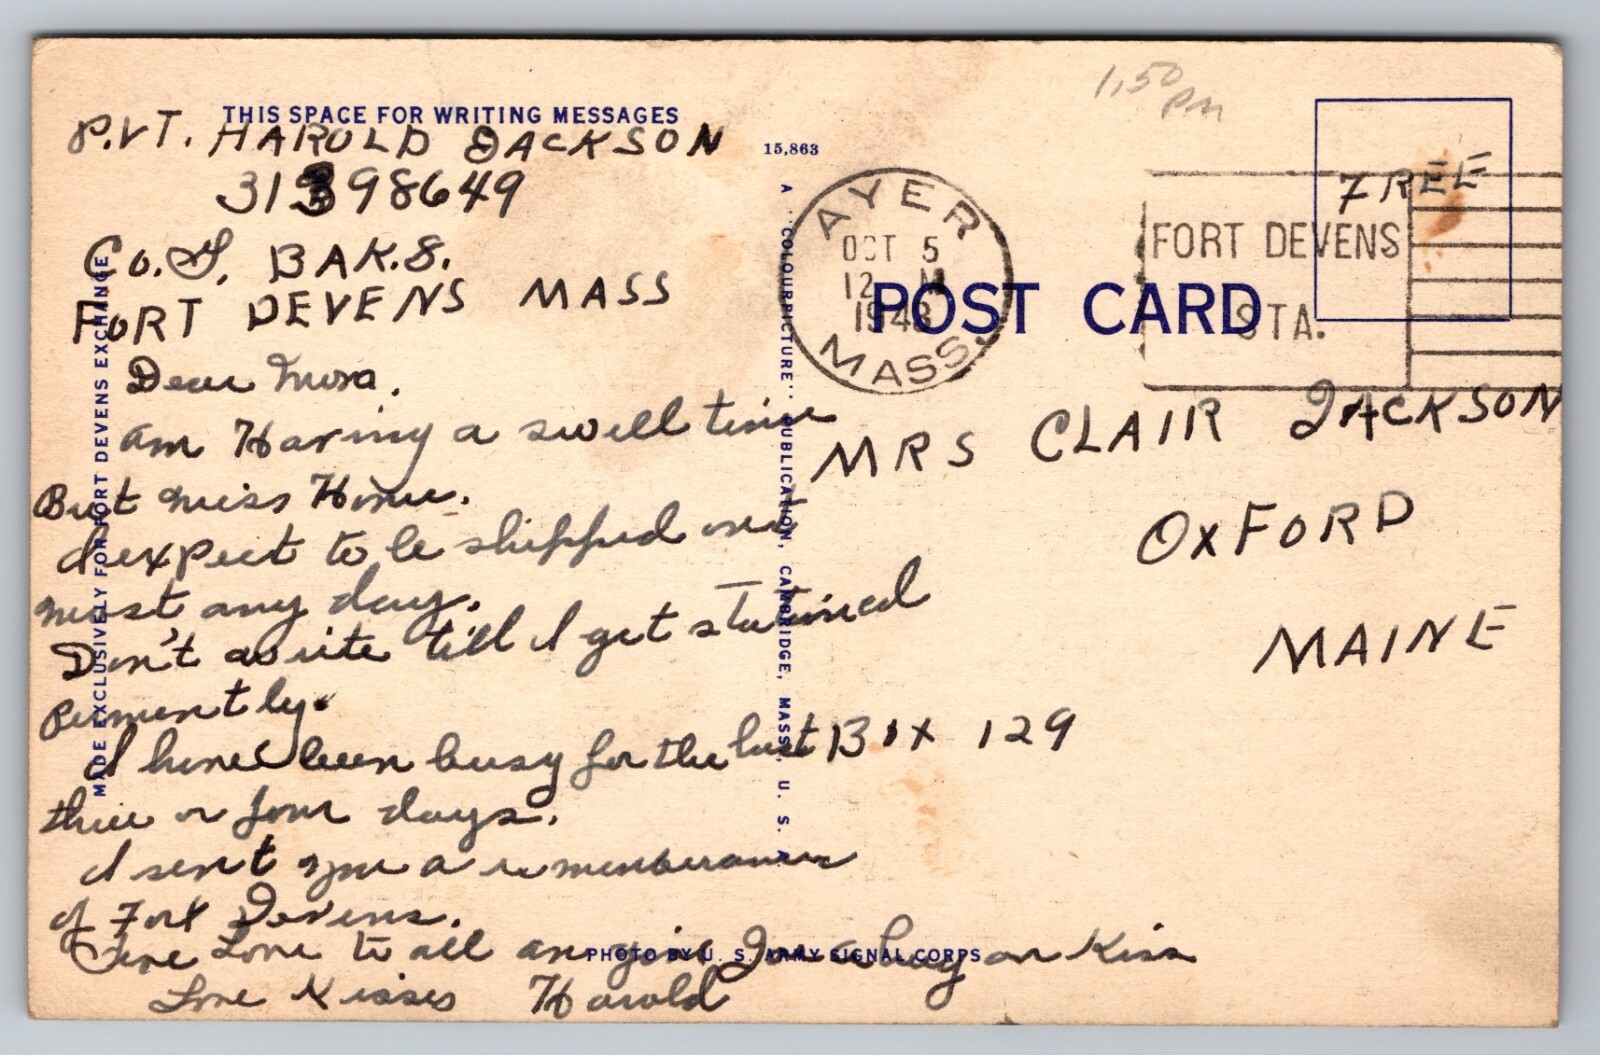 1,50
PM
THIS SPACE FOR WRITING MESSAGES
P.VT. HAROLD JACKSON
31398649
Co. BAK.S.
FORT DEVENS MASS
Dear
am Having a swell time
But miss Home.
I expect to be shipped out
most any day.
Don't write till I get stationed
permently.
I have been busy for the last
three or four days.
I sent you a rememberance
of Fort Devens.
Give Love to all an give Jon a hug an Kiss
Love Kisses Harold
MADE EXCLUSIVELY FOR FORT DEVENS EXCHANGE
15,863
A "COLOURPICTURE" PUBLICATION, CAMBRIDGE, MASS., U. S. A.
PHOTO BY U. S. ARMY SIGNAL CORPS
AYER
OCT 5
12 M
1943
MASS.
FORT DEVENS
STA.
FREE
POST CARD
MRS CLAIR JACKSON
OXFORD
MAINE
BOX 129